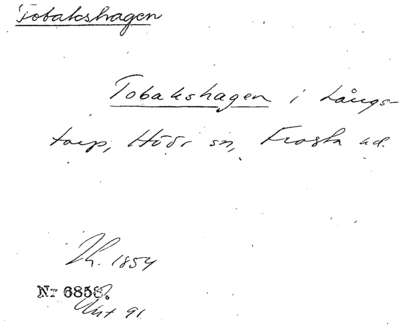 Tobakshagen
Tobakshagen i Långs-
torp, Höör sn, Frosta hd.
1854
Nr 6858.
91.